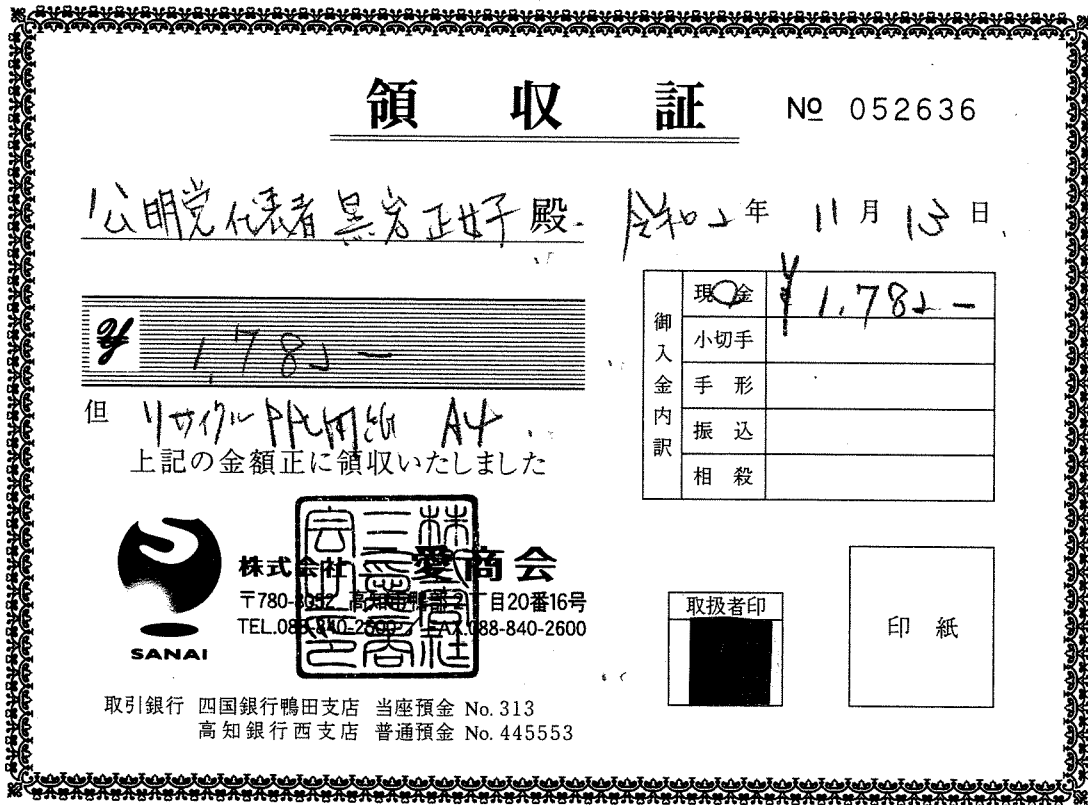 領収証 № 052636
公明党代表者 黒岩正好 殿
令和2年 11月 13日
¥ 1,782-
但 リサイクルPPC用紙 A4
上記の金額正に領収いたしました
御入金内訳
現金 ¥1,782-
小切手
手形
振込
相殺
SANAI
株式会社 三愛商会
〒780-8052 高知市鴨部2丁目20番16号
TEL.088-840-2600 FAX.088-840-2600
取扱者印
印紙
取引銀行 四国銀行鴨田支店 当座預金 No. 313
高知銀行西支店 普通預金 No. 445553